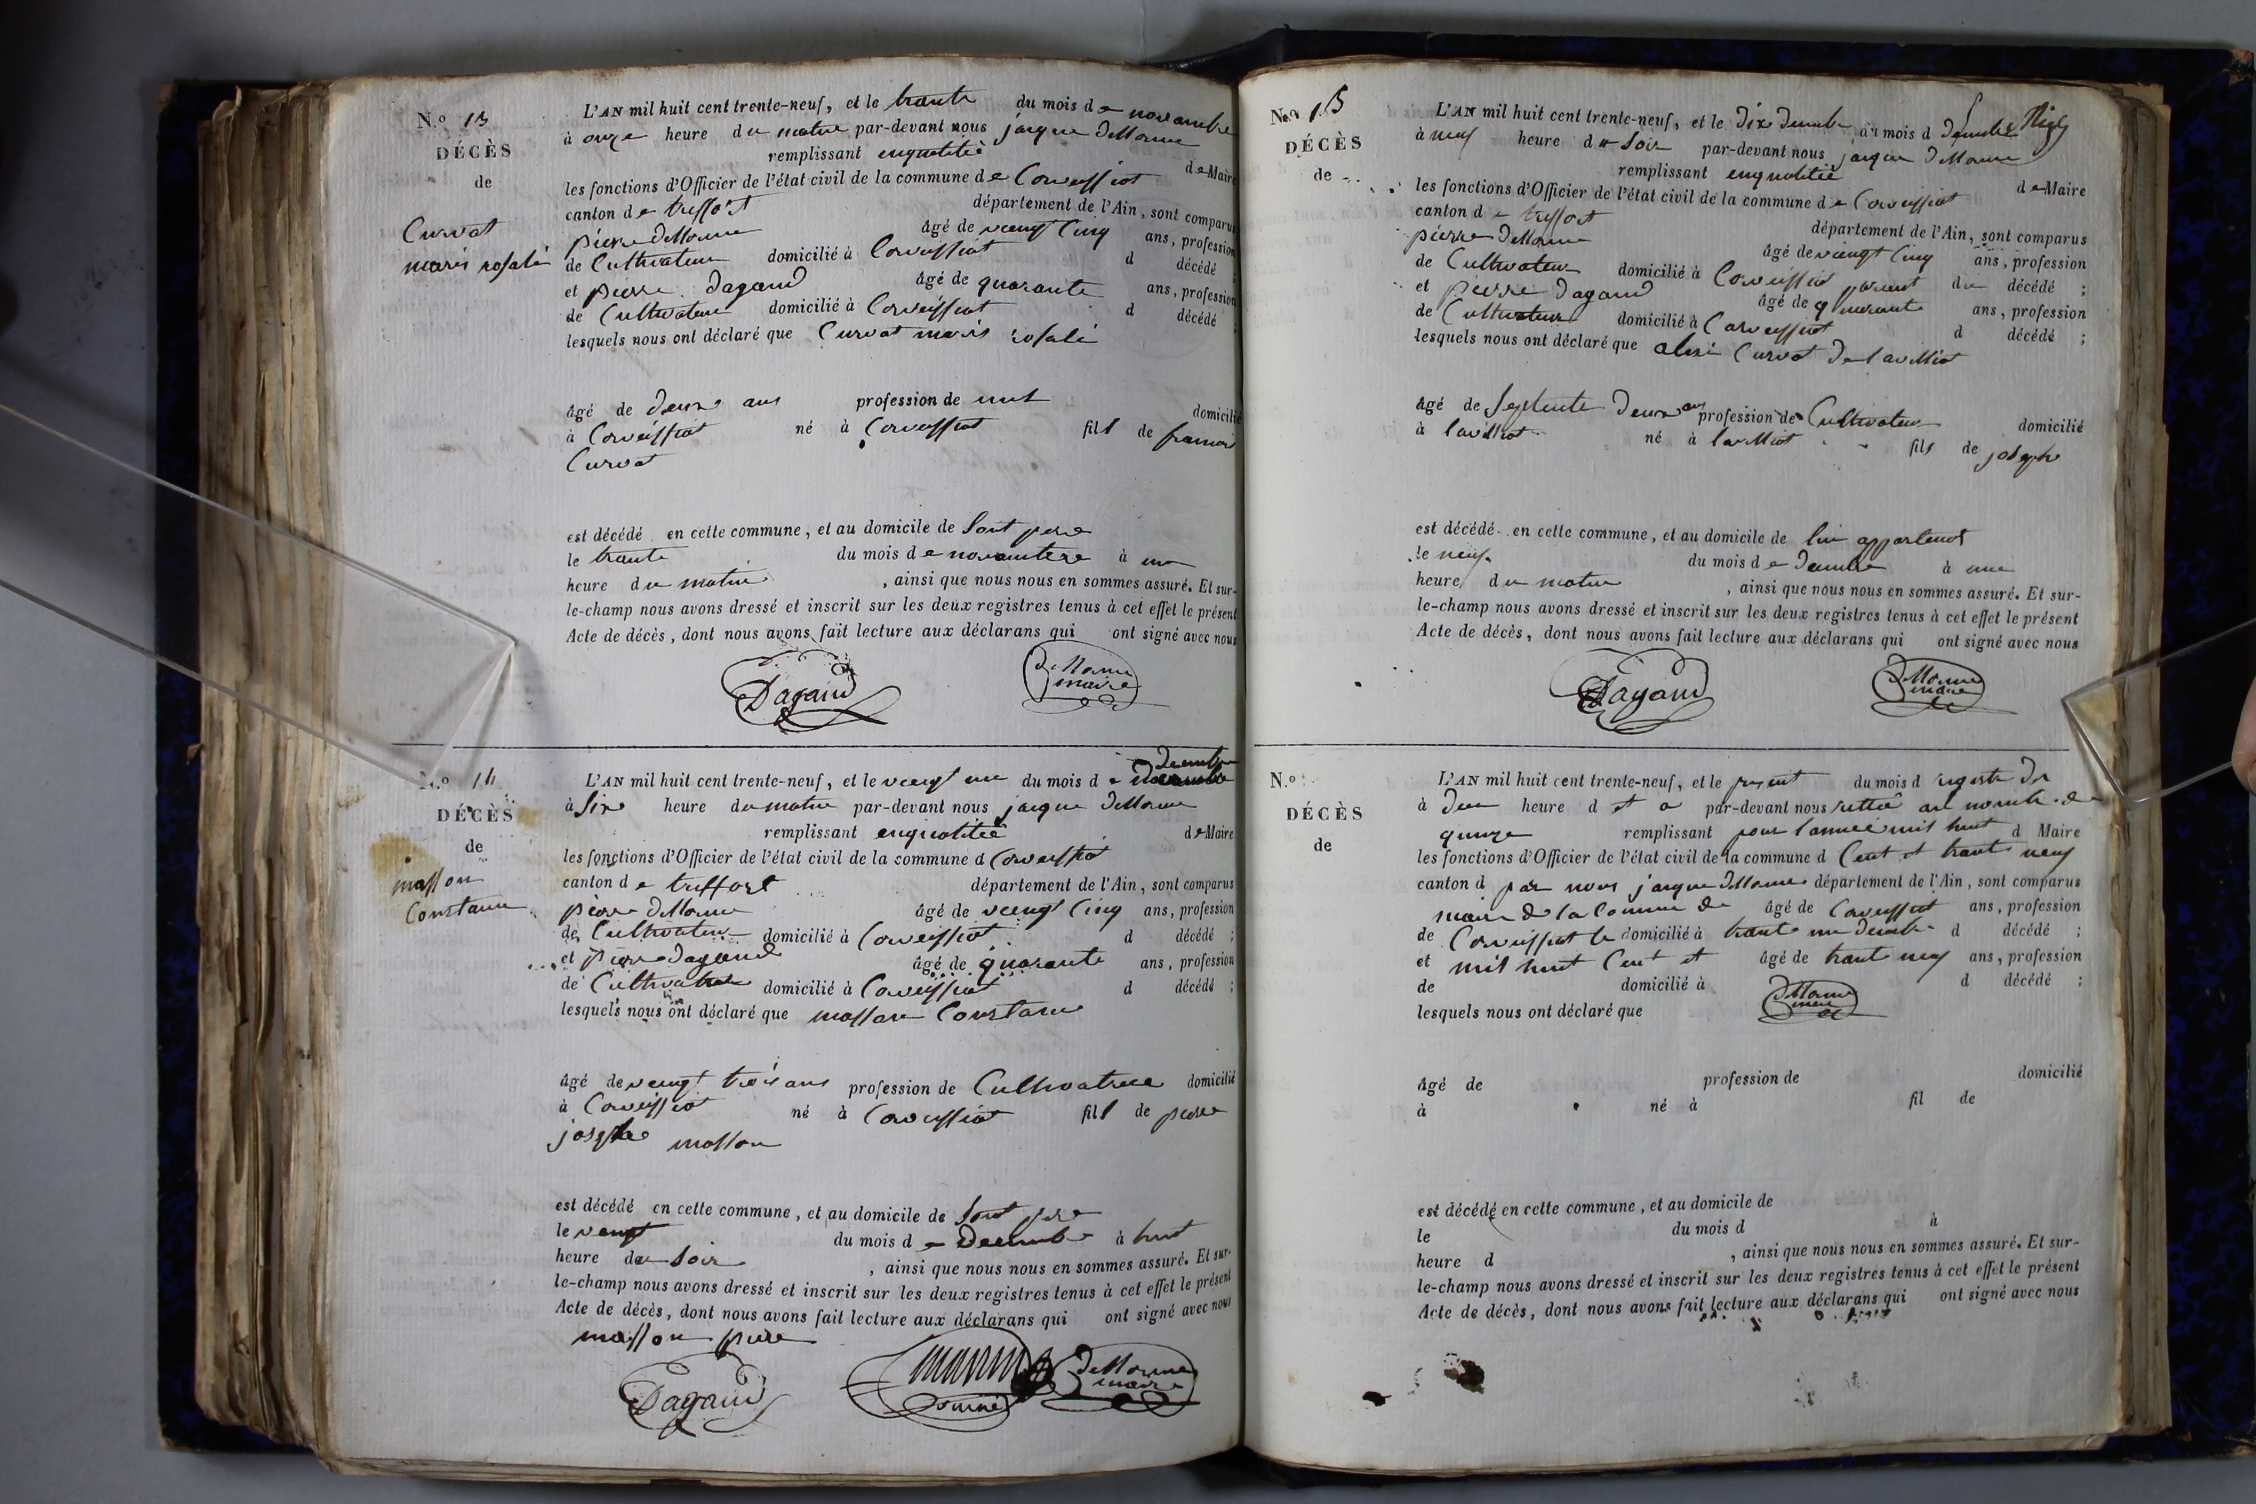 N.o 13
DÉCÈS
de
Curvat
marie rosali
L'AN mil huit cent trente-neuf, et le trante du mois de novambre
à onze heure du matin par-devant nous jacque deMorme
remplissant enqualitée de Maire
les fonctions d'Officier de l'état civil de la commune de Corveissiat
canton de treffort département de l'Ain, sont comparus
pierre deMorme âgé de veengt Cinq ans, profession
de Cultivateur domicilié à Corveissiat d décédé ;
et pierre dagand âgé de quarante ans, profession
de Cultivateur domicilié à Corveissiat d décédé ;
lesquels nous ont déclaré que Curvat marie rosali
âgé de deux ans profession de domicilié
à Corveissiat né à Corveissiat fill de
Curvat
est décédé en cette commune, et au domicile de sont pere
le trante du mois de novambre à une
heure du matin , ainsi que nous nous en sommes assuré. Et sur-
le-champ nous avons dressé et inscrit sur les deux registres tenus à cet effet le présent
Acte de décès, dont nous avons fait lecture aux déclarans qui ont signé avec nous
Dagand deMorme
maire
N.o 14
DÉCÈS
de
masson
Constance
L'AN mil huit cent trente-neuf, et le veengt une du mois de decembre
à six heure du matin par-devant nous jacque deMorme
remplissant enqualitée de Maire
les fonctions d'Officier de l'état civil de la commune d Corveissiat
canton de treffort département de l'Ain, sont comparus
pierre deMorme âgé de veengt Cinq ans, profession
de Cultivateur domicilié à Corveissiat d décédé ;
et pierre dagand âgé de quarante ans, profession
de Cultivateur domicilié à Corveissiat d décédé ;
lesquels nous ont déclaré que masson Constance
âgé de veengt trois ans profession de Cultivatrice domicilié
à Corveissiat né à Corveissiat fill de pierre
josephe masson
est décédé en cette commune, et au domicile de sont pere
le vengt du mois de Decembre à huit
heure du soir , ainsi que nous nous en sommes assuré. Et sur-
le-champ nous avons dressé et inscrit sur les deux registres tenus à cet effet le présent
Acte de décès, dont nous avons fait lecture aux déclarans qui ont signé avec nous
masson pere
Dagand deMorme
maire
N.o 15
DÉCÈS
de
L'AN mil huit cent trente-neuf, et le dix decembre du mois d
à neuf heure du soir par-devant nous jacque deMorme
remplissant enqualitée de Maire
les fonctions d'Officier de l'état civil de la commune de Corveissiat
canton de treffort département de l'Ain, sont comparus
pierre deMorme âgé de veengt Cinq ans, profession
de Cultivateur domicilié à Corveissiat parent du décédé ;
et pierre dagand âgé de quarante ans, profession
de Cultivateur domicilié à Corveissiat d décédé ;
lesquels nous ont déclaré que Curvat de lavilliat
âgé de septente deux ans profession de Cultivateur domicilié
à lavilliat né à lavilliat fils de joseph
est décédé en cette commune, et au domicile de lui appartenot
le neuf du mois de decembre à une
heure du matin , ainsi que nous nous en sommes assuré. Et sur-
le-champ nous avons dressé et inscrit sur les deux registres tenus à cet effet le présent
Acte de décès, dont nous avons fait lecture aux déclarans qui ont signé avec nous
Dagand deMorme
maire
N.o
DÉCÈS
de
L'AN mil huit cent trente-neuf, et le present du mois d registre de
à heure d par-devant nous au nombre de
quinze remplissant pour l'année mil huit d Maire
les fonctions d'Officier de l'état civil de la commune d Cent et trante neuf
canton d par nous jacque deMorme département de l'Ain, sont comparus
maire de la Commune de âgé de Corveissiat ans, profession
de Corveissiat le domicilié à trante une decembre d décédé ;
et mil huit Cent et âgé de trante neuf ans, profession
de domicilié à d décédé ;
deMorme
maire
lesquels nous ont déclaré que
âgé de profession de domicilié
à né à fil de
est décédé en cette commune, et au domicile de
le du mois d à
heure d , ainsi que nous nous en sommes assuré. Et sur-
le-champ nous avons dressé et inscrit sur les deux registres tenus à cet effet le présent
Acte de décès, dont nous avons fait lecture aux déclarans qui ont signé avec nous